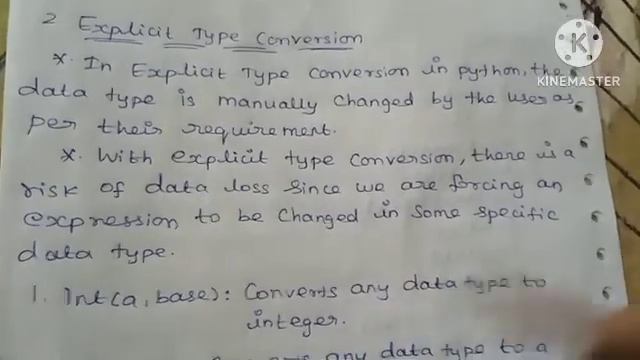 2 Explicit Type Conversion
*. In Explicit Type conversion in python, the
data type is manually changed by the user as
per their requirement.
*. With explicit type conversion, there is a
risk of data loss since we are forcing an
expression to be changed in some specific
data type.
1. Int(a, base): Converts any data type to
integer.
any data type to a
K
KINEMASTER